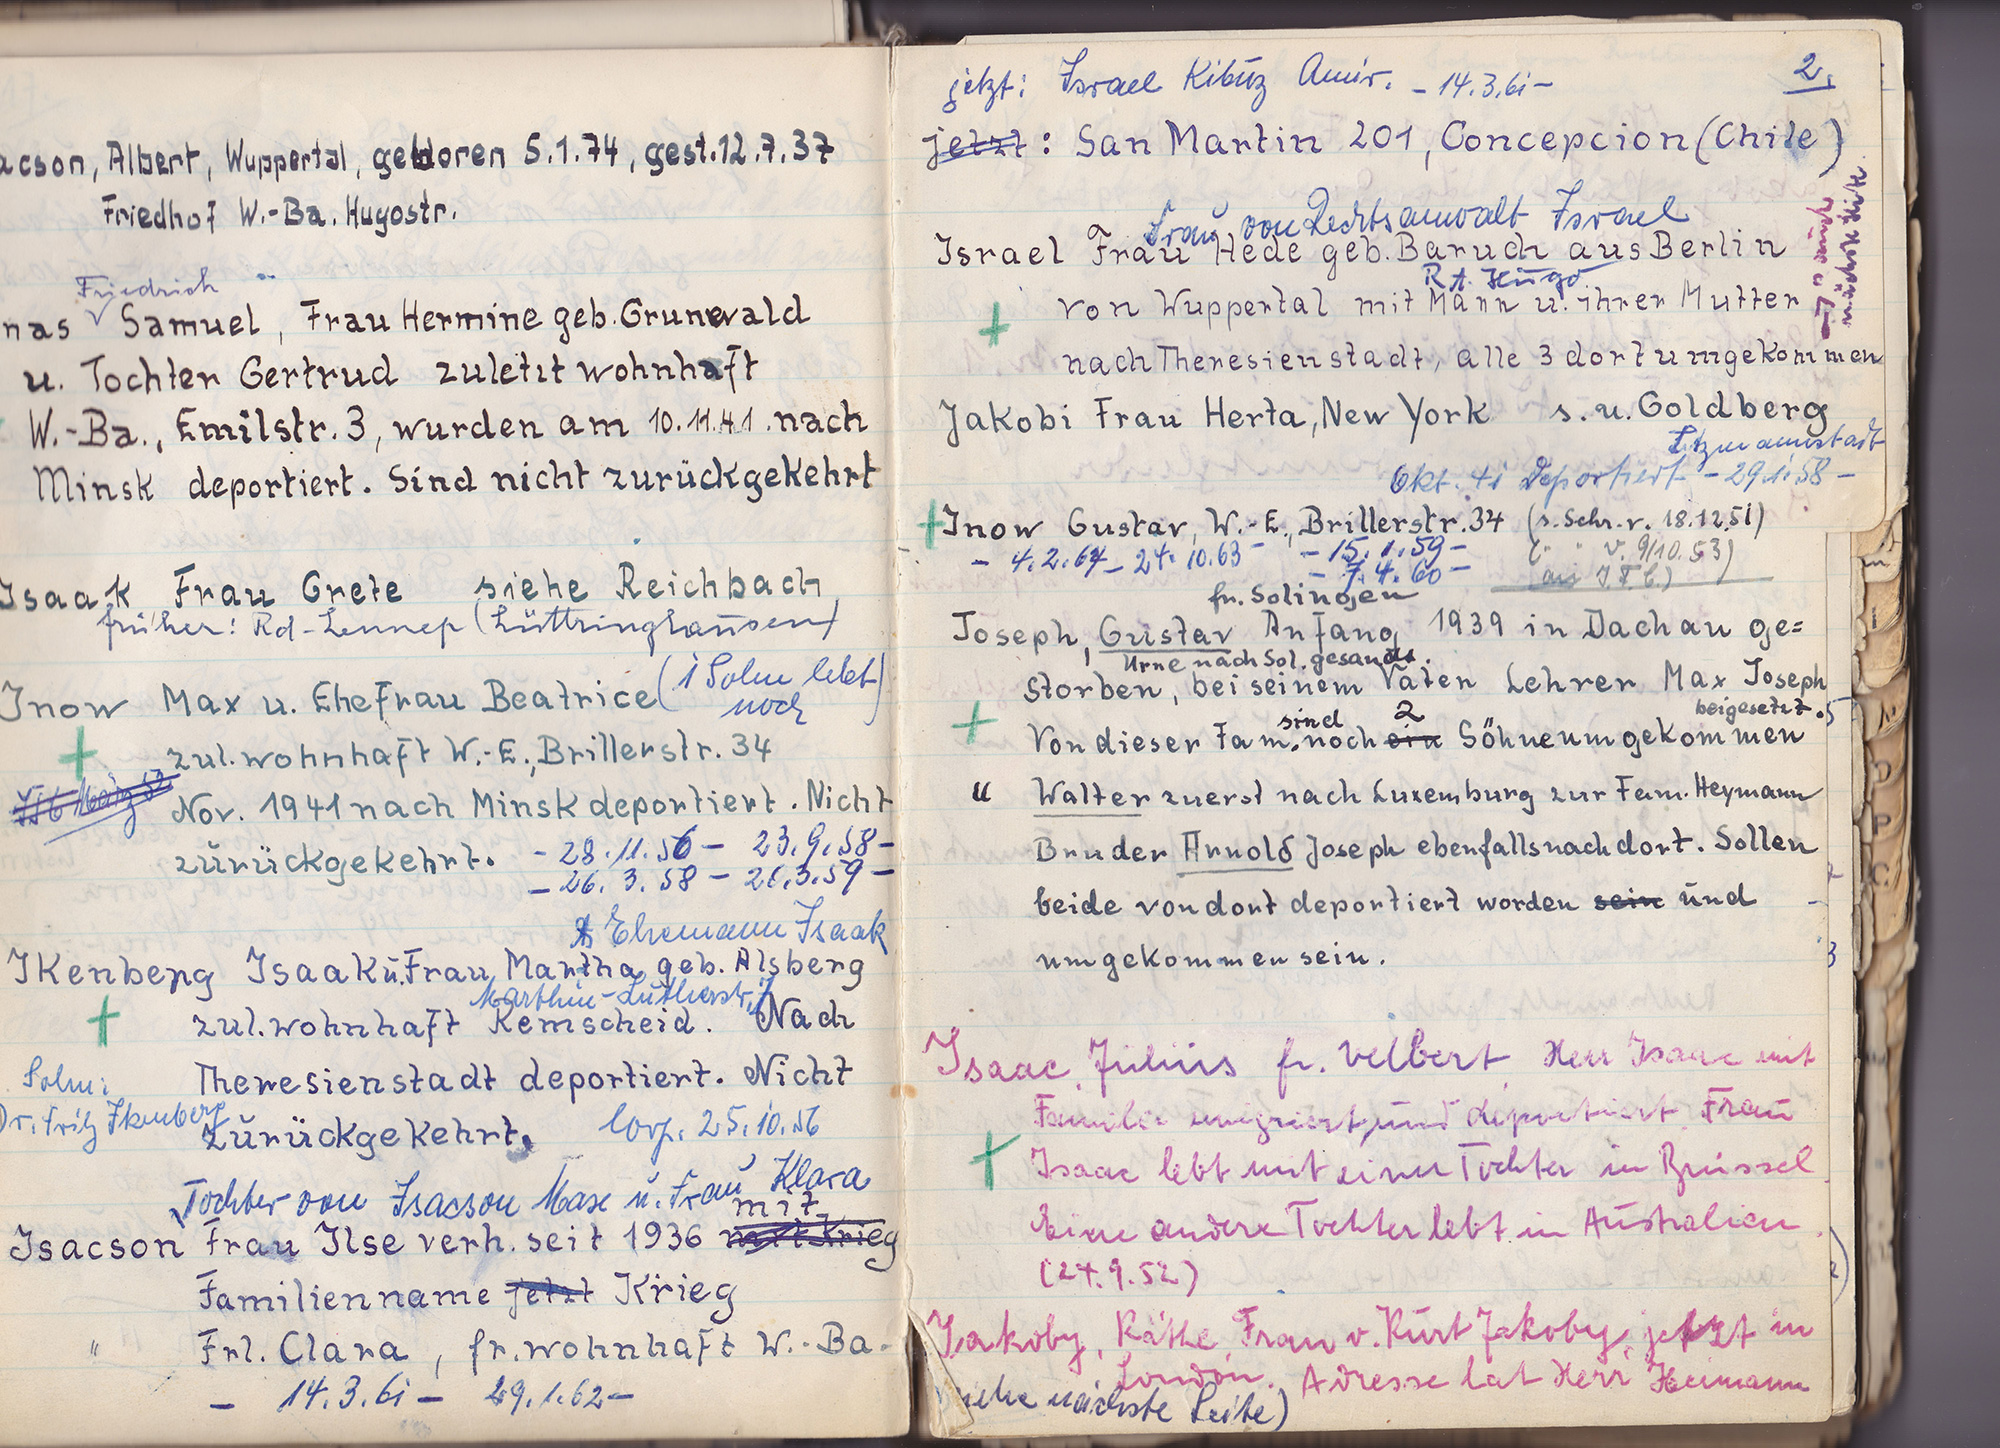 acson, Albert, Wuppertal, geboren 5.1.74, gest. 12.7.37
Friedhof W.-Ba. Hugostr.
Friedrich
nas Samuel, Frau Hermine geb. Grunewald
u. Tochter Gertrud zuletzt wohnhaft
W.-Ba., Emilstr. 3, wurden am 10.11.41 nach
Minsk deportiert. Sind nicht zurückgekehrt
Isaak Frau Grete siehe Reichbach
früher: Rd-Lennep (Lüttringhausen)
(1 Sohn lebt
noch)
Inow Max u. Ehefrau Beatrice
zul. wohnhaft W.-E., Brillerstr. 34
März 52
Nov. 1941 nach Minsk deportiert. Nicht
zurückgekehrt. - 28.11.56 - 23.9.58 -
- 26.3.58 - 20.3.59 -
Ehemann Isaak
Ikenberg Isaak u. Frau Martha geb. Alsberg
Marthin-Lutherstr.
zul. wohnhaft Remscheid. Nach
Sohn:
Theresienstadt deportiert. Nicht
Dr. Fritz Ikenberg
zurückgekehrt. 25.10.56
Tochter von Isacson Max u. Frau Klara
mit
Isacson Frau Ilse verh. seit 1936 mit Krieg
Familienname jetzt Krieg
" Frl. Clara, fr. wohnhaft W.-Ba.
- 14.3.61 - 29.1.62 -
2.
jetzt: Israel Kibuz Amir. - 14.3.61 -
jetzt: San Martin 201, Concepcion (Chile)
Frau von Rechtsanwalt Israel
Israel Frau Hede geb. Baruch aus Berlin
R.A. Hugo
von Wuppertal mit Mann u. ihrer Mutter
nach Theresienstadt, alle 3 dort umgekommen
siehe
nächste Seite
Jakobi Frau Herta, New York s. u. Goldberg
Litzmannstadt
Okt. 41 Deportiert - 29.1.58 -
Inow Gustav, W.-E., Brillerstr. 34 (s. Schr. v. 18.12.51)
- 4.2.64 - 24.10.63 - - 15.1.59 - (" " v. 9/10.53)
- 7.4.60 -
fr. Solingen
Joseph, Gustav Anfang 1939 in Dachau ge=
Urne nach Sol. gesandt.
storben, bei seinem Vater Lehrer Max Joseph
beigesetzt.
sind 2
Von dieser Fam. noch ein Söhne umgekommen
" Walter zuerst nach Luxemburg zur Fam. Heymann
Bruder Arnold Joseph ebenfalls nach dort. Sollen
beide von dort deportiert worden sein und
umgekommen sein.
Isaac, Julius fr. Velbert, Herr Isaac mit
Familie emigriert und deportiert. Frau
Isaac lebt mit einer Tochter in Brüssel
Eine andere Tochter lebt in Australien.
(24.9.52)
Jakoby, Käthe, Frau v. Kurt Jakoby, jetzt in
London. Adresse hat Herr Heimann
(siehe nächste Seite)